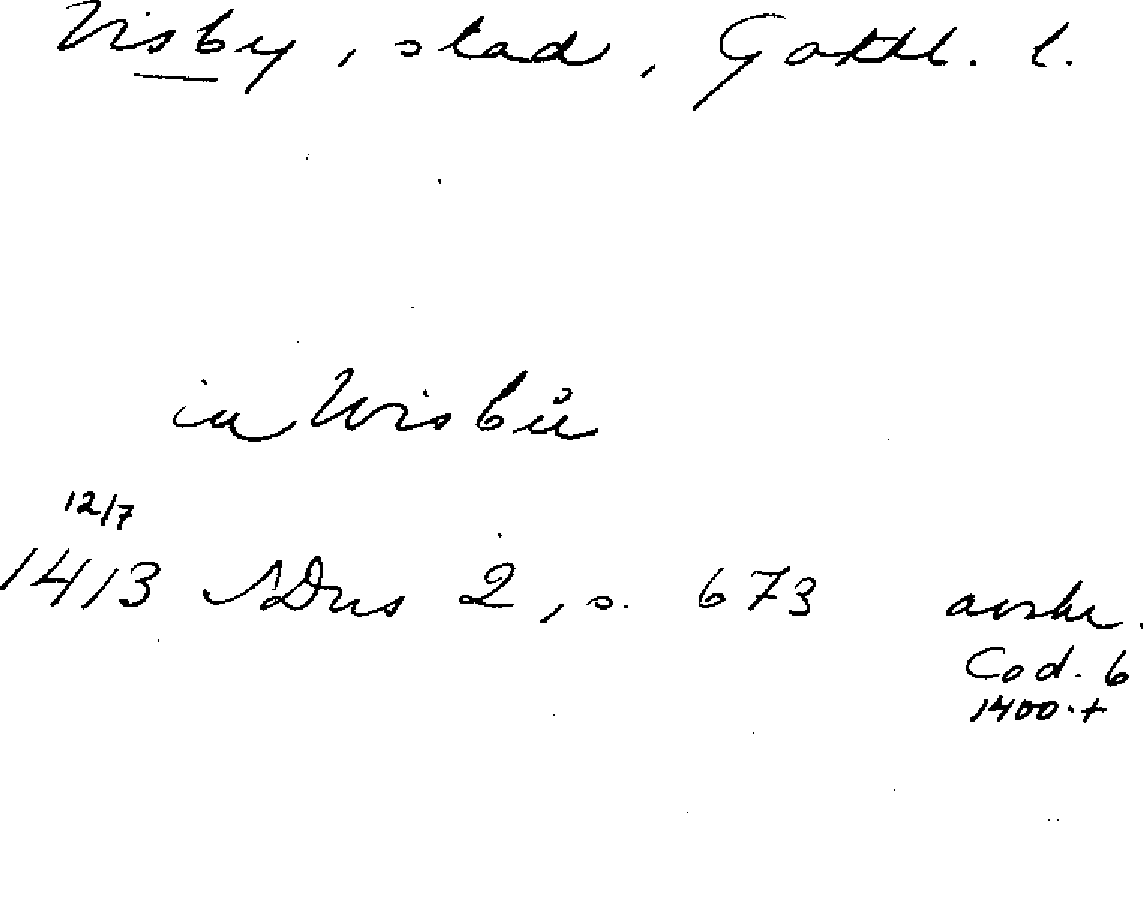 Visby, stad, Gotthl. l.
in Wisbů
12/7
1413 SDns 2, s. 673 avskr.
Cod. 6
1400-t